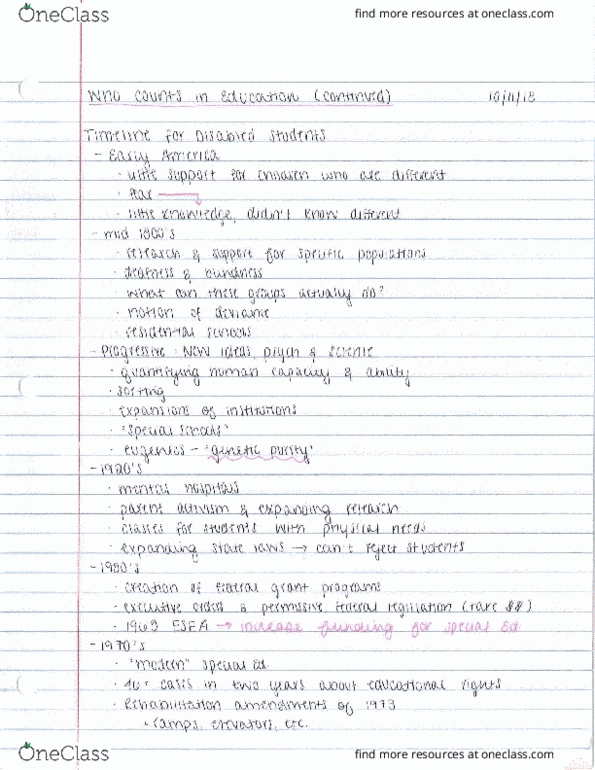 OneClass
find more resources at oneclass.com
Who Counts in Education (continued)
Timeline for Disabled Students
- Early America
· little support for children who are different
· fear
· little knowledge, didn't know different
- mid 1800's
· research & support for specific populations
· deafness & blindness
· what can these groups actually do?
· notion of deviance
· residential schools
- Progressive: New ideas, psych & science
· quantifying human capacity & ability
· sorting
· expansions of institutions
· "special schools"
· eugenics - "genetic purity"
- 1920's
· mental hospitals
· parent activism & expanding research
· classes for students with physical needs
· expanding state laws → can't reject students
· creation of federal grant programs
· executive orders & permissive federal legislation (rare $$)
· 1965 ESEA → increase funding for special Ed.
- 1970's
· "modern" special Ed.
· 40+ cases in two years about educational rights
· Rehabilitation amendments of 1973
· ramps, elevators, etc.
OneClass
find more resources at oneclass.com